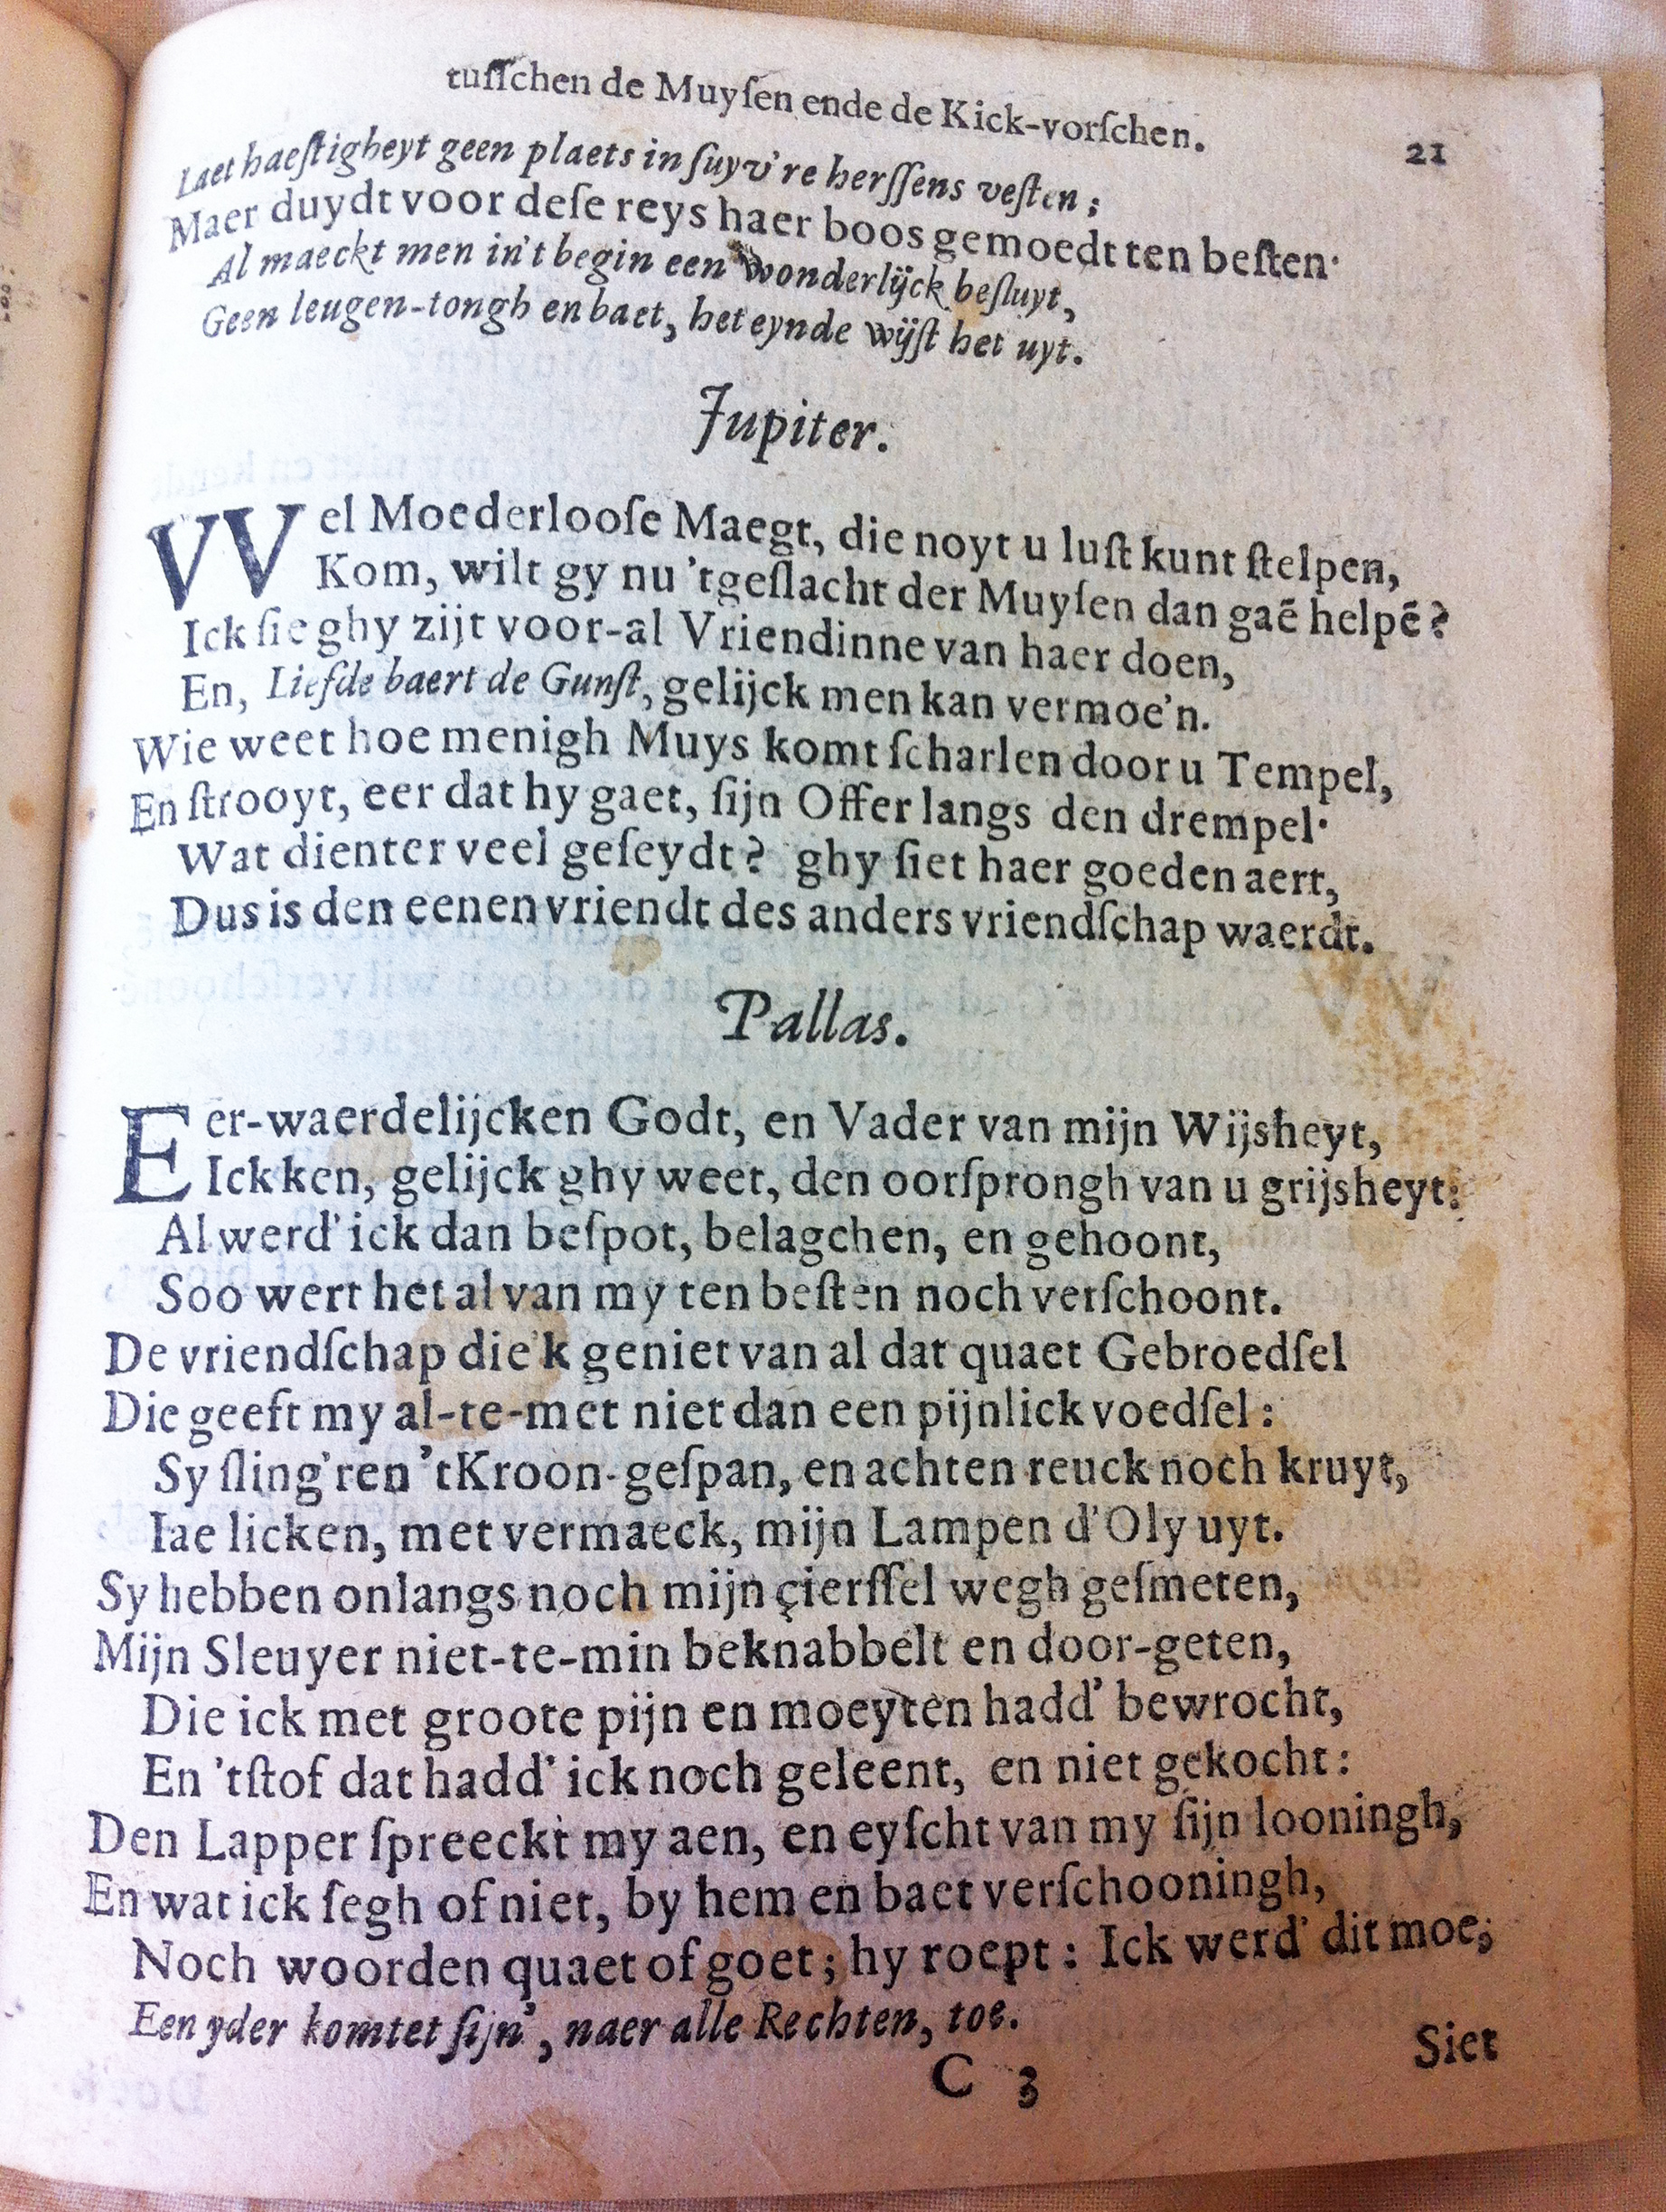 tuſſchen de Muyſen ende de Kick-vorſchen. 21
Laet haeſtigheyt geen plaets in ſuyv're herſſens veſten;
Maer duydt voor deſe reys haer boos gemoedt ten beſten.
Al maeckt men in't begin een wonderlijck beſluyt,
Geen leugen-tongh en baet, het eynde wijſt het uyt.
Jupiter.
VVel Moederlooſe Maegt, die noyt u luſt kunt ſtelpen,
Kom, wilt gy nu 'tgeſlacht der Muyſen dan gaē helpē?
Ick ſie ghy zijt voor-al Vriendinne van haer doen,
En, Liefde baert de Gunſt, gelijck men kan vermoe'n.
Wie weet hoe menigh Muys komt ſcharlen door u Tempel,
En ſtrooyt, eer dat hy gaet, ſijn Offer langs den drempel.
Wat dienter veel geſeydt? ghy ſiet haer goeden aert,
Dus is den eenen vriendt des anders vriendſchap waerdt.
Pallas.
Eer-waerdelijcken Godt, en Vader van mijn Wijsheyt,
Ick ken, gelijck ghy weet, den oorſprongh van u grijsheyt:
Al werd' ick dan beſpot, belagchen, en gehoont,
Soo wert het al van my ten beſten noch verſchoont.
De vriendſchap die'k geniet van al dat quaet Gebroedſel
Die geeft my al-te-met niet dan een pijnlick voedſel:
Sy ſling'ren 'tKroon-geſpan, en achten reuck noch kruyt,
Iae licken, met vermaeck, mijn Lampen d'Oly uyt.
Sy hebben onlangs noch mijn çierſſel wegh geſmeten,
Mijn Sleuyer niet-te-min beknabbelt en door-geten,
Die ick met groote pijn en moeyten hadd' bewrocht,
En 'tſtof dat hadd' ick noch geleent, en niet gekocht:
Den Lapper ſpreeckt my aen, en eyſcht van my ſijn looningh,
En wat ick ſegh of niet, by hem en baet verſchooningh,
Noch woorden quaet of goet; hy roept: Ick werd' dit moe;
Een yder komtet ſijn', naer alle Rechten, toe.
C 3 Siet